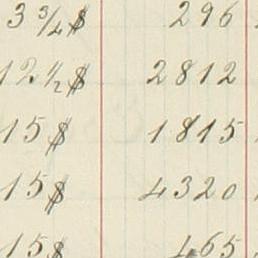 3 3/4 $ 296
12. 1/2 $ 2812
15 $ 1815
15 $ 4320
15 $ 465